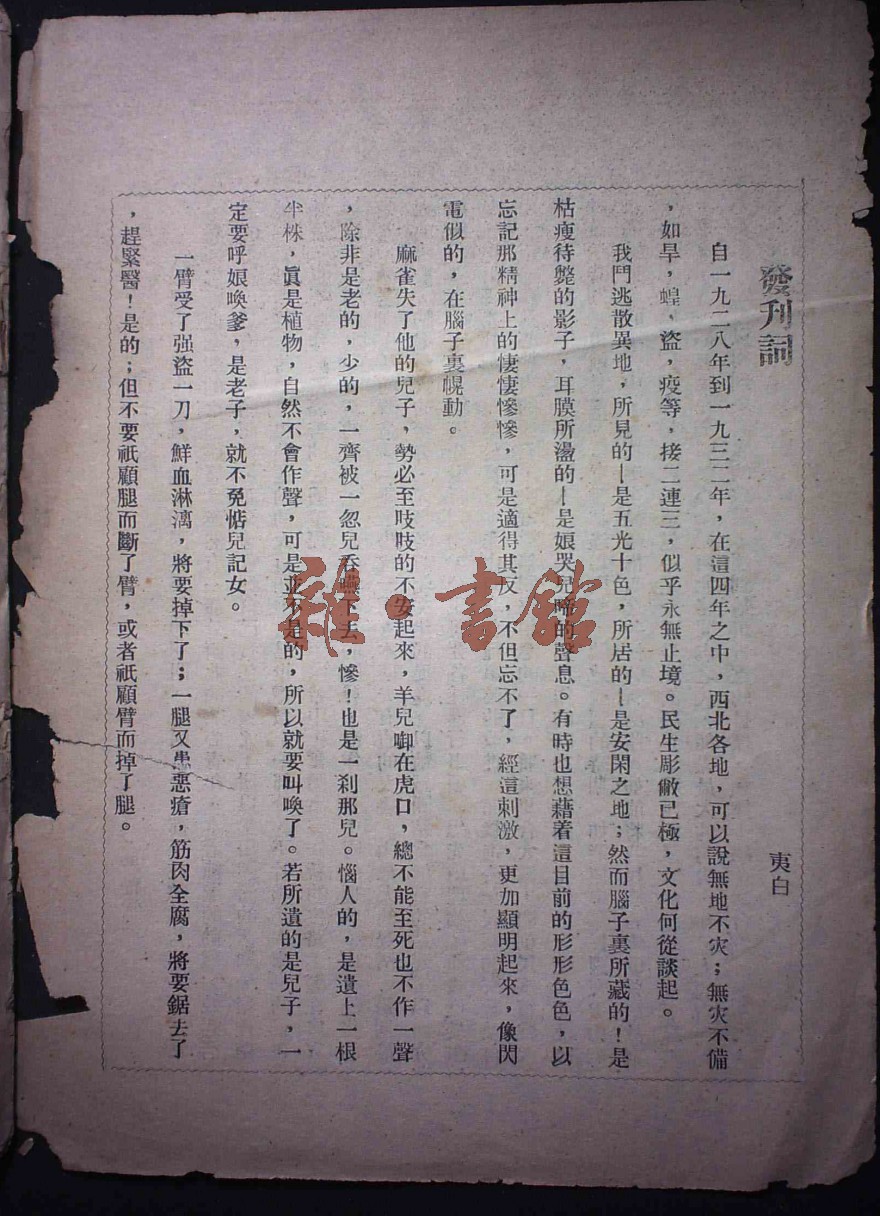 發刊詞
夷白
自一九二八年到一九三二年，在這四年之中，西北各地，可以說無地不灾；無灾不備
，如旱，蝗，盜，疫等，接二連三，似乎永無止境。民生彫敝已極，文化何從談起。
我門逃散異地，所見的—是五光十色，所居的—是安閑之地；然而腦子裏所藏的！是
枯瘦待斃的影子，耳膜所盪的—是娘哭兒啼的聲息。有時也想藉着這目前的形形色色，以
忘記那精神上的悽悽慘慘，可是適得其反，不但忘不了，經這刺激，更加顯明起來，像閃
電似的，在腦子裏幌動。
麻雀失了他的兒子，勢必至吱吱的不安起來，羊兒啣在虎口，總不能至死也不作一聲
，除非是老的，少的，一齊被一忽兒吞嚥下去，慘！也是一刹那兒。惱人的，是遺上一根
半株，眞是植物，自然不會作聲，可是並不是的，所以就要叫喚了。若所遺的是兒子，一
定要呼娘喚爹，是老子，就不免惦兒記女。
一臂受了强盜一刀，鮮血淋漓，將要掉下了；一腿又患惡瘡，筋肉全腐，將要鋸去了
，趕緊醫！是的；但不要祇顧腿而斷了臂，或者祇顧臂而掉了腿。
雜·書館